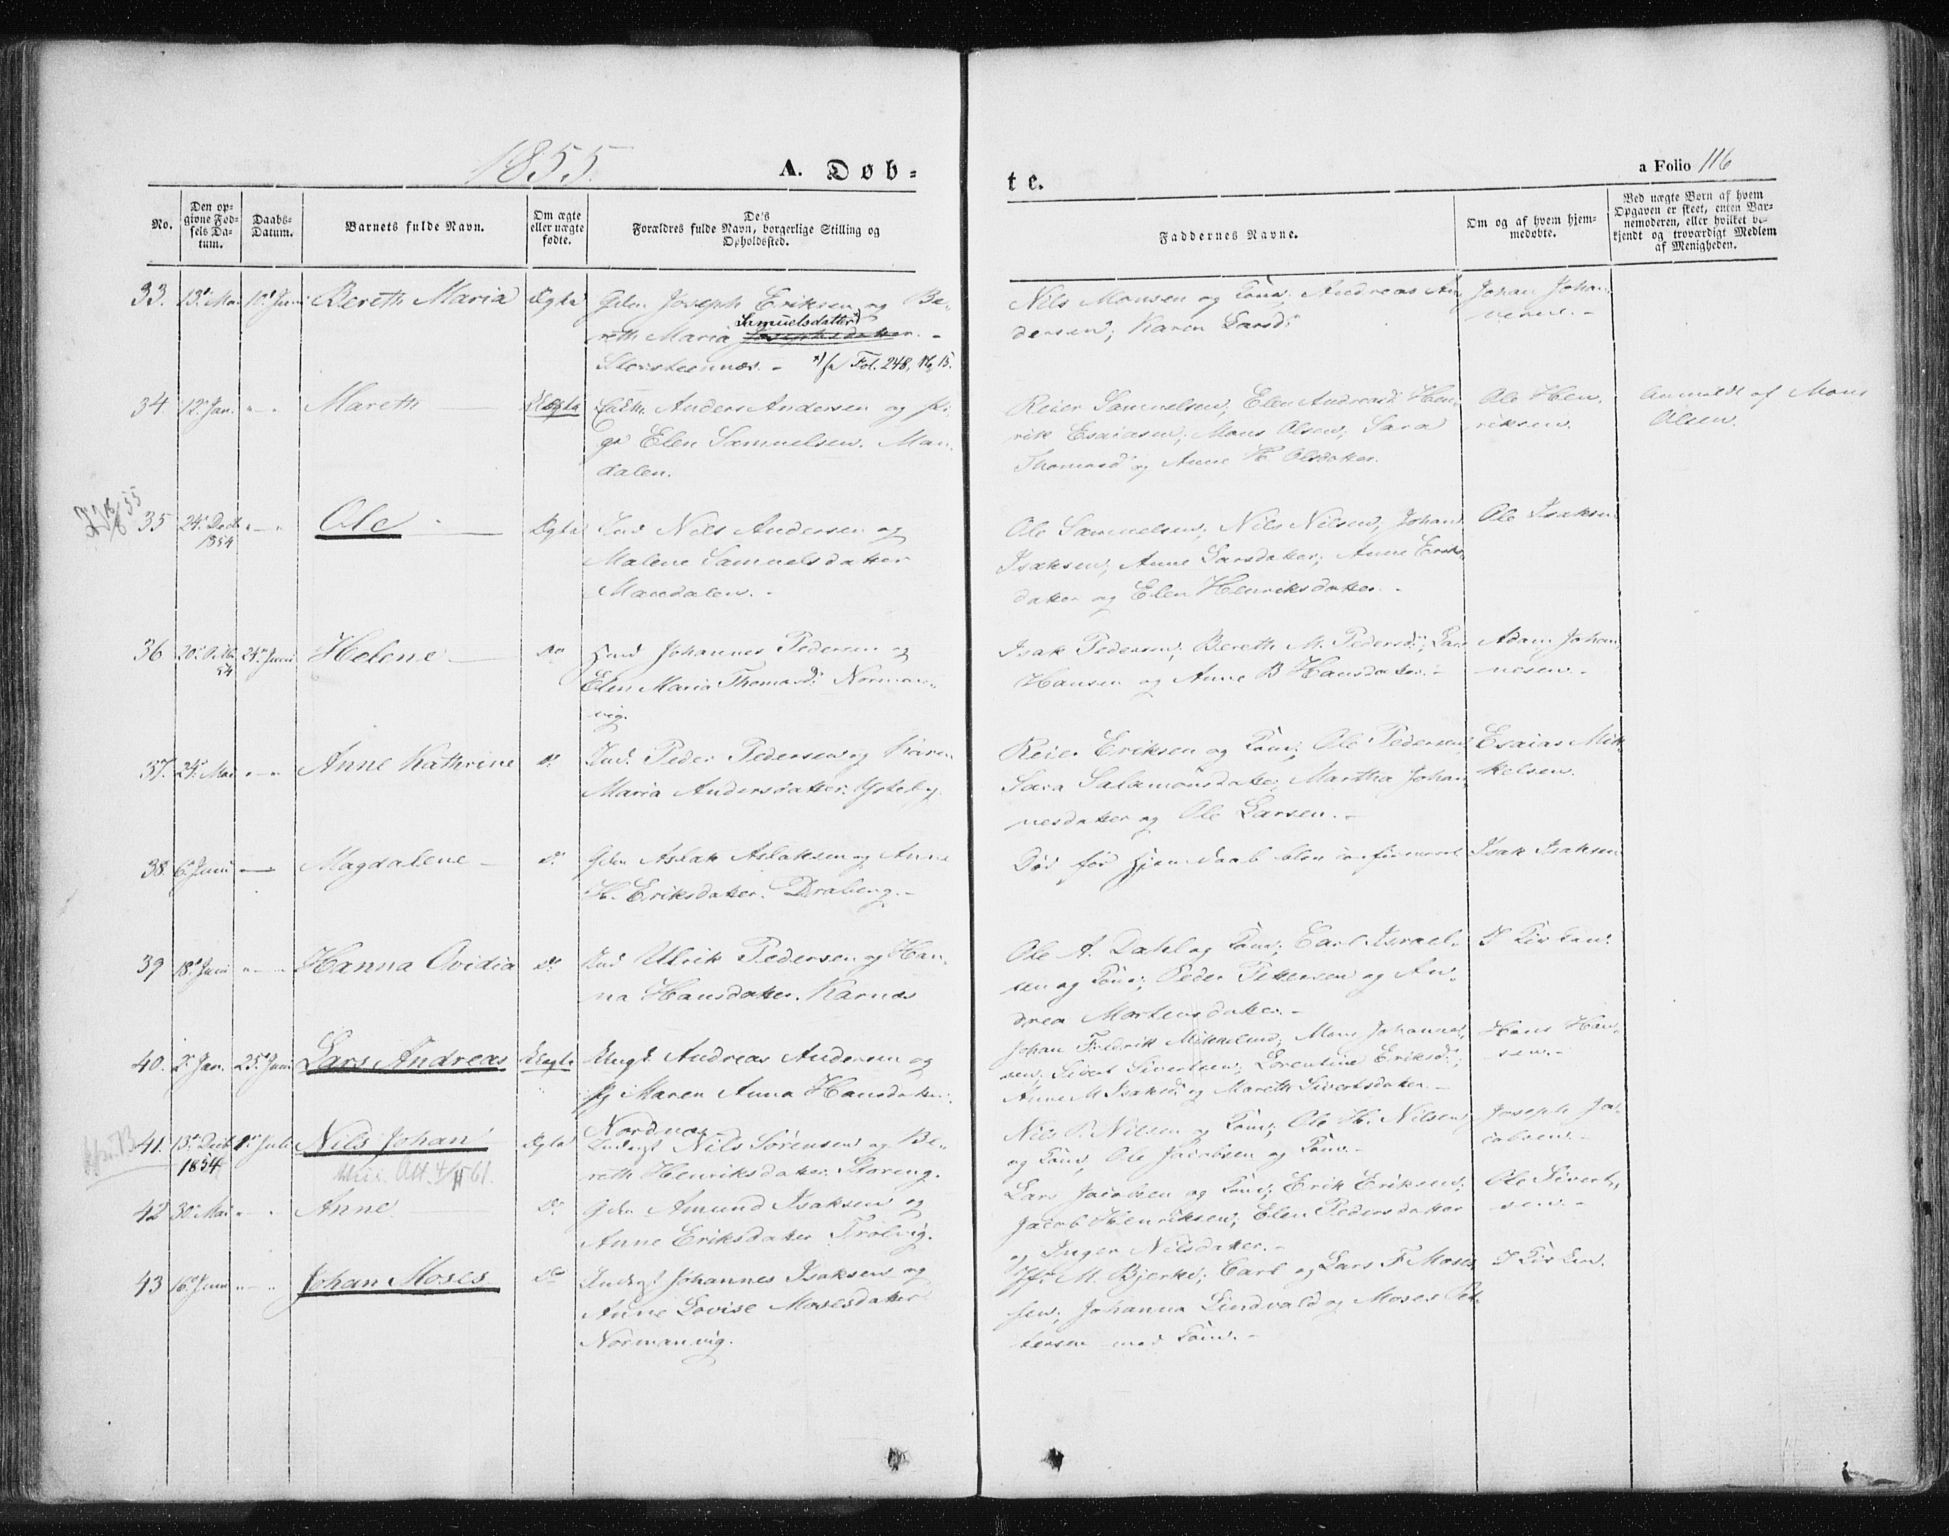 1855.
A. Døb-
te.
a Folio 116
No.
Den op-
givne Fød-
sels Da-
tum.
Daabs-
Datum.
Barnets fulde Navn.
Om ægte
eller uægte
fødte.
De's
Forældres fulde Navn, borgerlige Stilling og
Opholdssted.
Faddernes Navne.
Om og af hvem hjem-
medøbte.
Ved uægte Børn af hvem
Opgaven er skeet, enten Bar-
nemoderen, eller hvilket be-
kjendt og troværdigt Medlem
af Menigheden.
33. 13de Mai 10de Juni Bereth Maria Ægte Joseph Eriksen og Be-
Samuelsdatter
reth Maria Josephsdatter. -
Fol. 248, 15.
Nils Monsen og Kone; Andreas An-
dersen; Karen Larsd:
Johan Johan-
34. 12te Jan. " - " Mareth Uægte Anders Andersen og Pi-
ge Elen Samuelsen. Man-
dalen.
Reier Samuelsen, Elen Andreasd: Hen-
rik Esaiasen; Mons Olsen, Sara
Thomasd: og Anne H. Olsdatter.
Ole Hen-
riksen.
Anmeldt af Mons
Olsen.
35 24de Decb. " - " Ole Ægte Ind. Nils Andersen og
1854
Malene Samuelsdatter
Mandalen. -
Ole Samuelsen; Nils Nilsen, Johan
Isaksen, Anne Larsdatter; Anne Eriks-
datter og Elen Henriksdatter. -
Ole Isaksen
36 24de Juni Helene Do Johannes Pedersen og
54
Elen Maria Thomasd: Norman-
vig.
Isak Pedersen, Bereth M. Pedersd:; Lars
Hansen og Anne B Hansdatter. -
Adam Johan-
nesen. -
37. 24de Mai " - " Anne Kathrine Do Ind. Peder Pedersen og Karen
Maria Andersdatter.
Reier Eriksen og Kone; Ole Pedersen
Sara Salamonsdatter, Martha Johan-
nesdatter og Ole Larsen. -
Esaias Mik-
kelsen.
38. 6te Juni Magdalene Do Aslak Aslaksen og Anne
H. Eriksdatter. Draberg. -
Død før Hjemdaab blev confirmeret
Isak Isaksen
39 18de Juni " - " Hanna Ovidia Do Ind Ulrik Pedersen og Han-
na Hansdatter. Karnæs
Ole A. Dahl og Kone; Carl Israel-
sen og Kone; Peder Pettersen og An-
drea Mortensdatter. -
I Kirken.
40. 2de Jan. 25de Juni Lars Andreas Uægte Ungk. Andreas Andersen og
Pg Maren Anna Hansdatter.
Nordnæs
Johan Fredrik Mikkelsen; Mons Johanne-
sen; Sivert Sivertsen; Lorentine Eriksd:;
Anne M Isaksd: og Mareth Sivertsdatter. -
Hans Han-
sen. -
41. 13de Decb. 1ste Juli Nils Johan Ægte Indergt Nils Sørensen og Be-
1854
Att. 4/11 61.
reth Henriksdatter. Storeng.
Nils P. Nilsen og Kone; Ole H. Nilsen
og Kone, Ole Jacobsen og Kone. -
Joseph Ja-
cobsen. -
42 30te Mai " - " Anne Do Amund Isaksen og
Anne Eriksdatter Trolvig.
Lars Jacobsen og Kone; Erik Eriksen;
Jacob Henriksen; Elen Pedersdatter
og Inger Nilsdatter. -
Ole Sivert-
sen. -
43 16de Juni " - " Johan Moses Do Indergt Johannes Isaksen og
Anne Lovise Mosesdatter
Normanvig.
Hr M. Bjerke; Carl og Lars F Moses
sen; Johanna Lindvald og Moses Pet-
tersen med Kone. -
I Kirken.